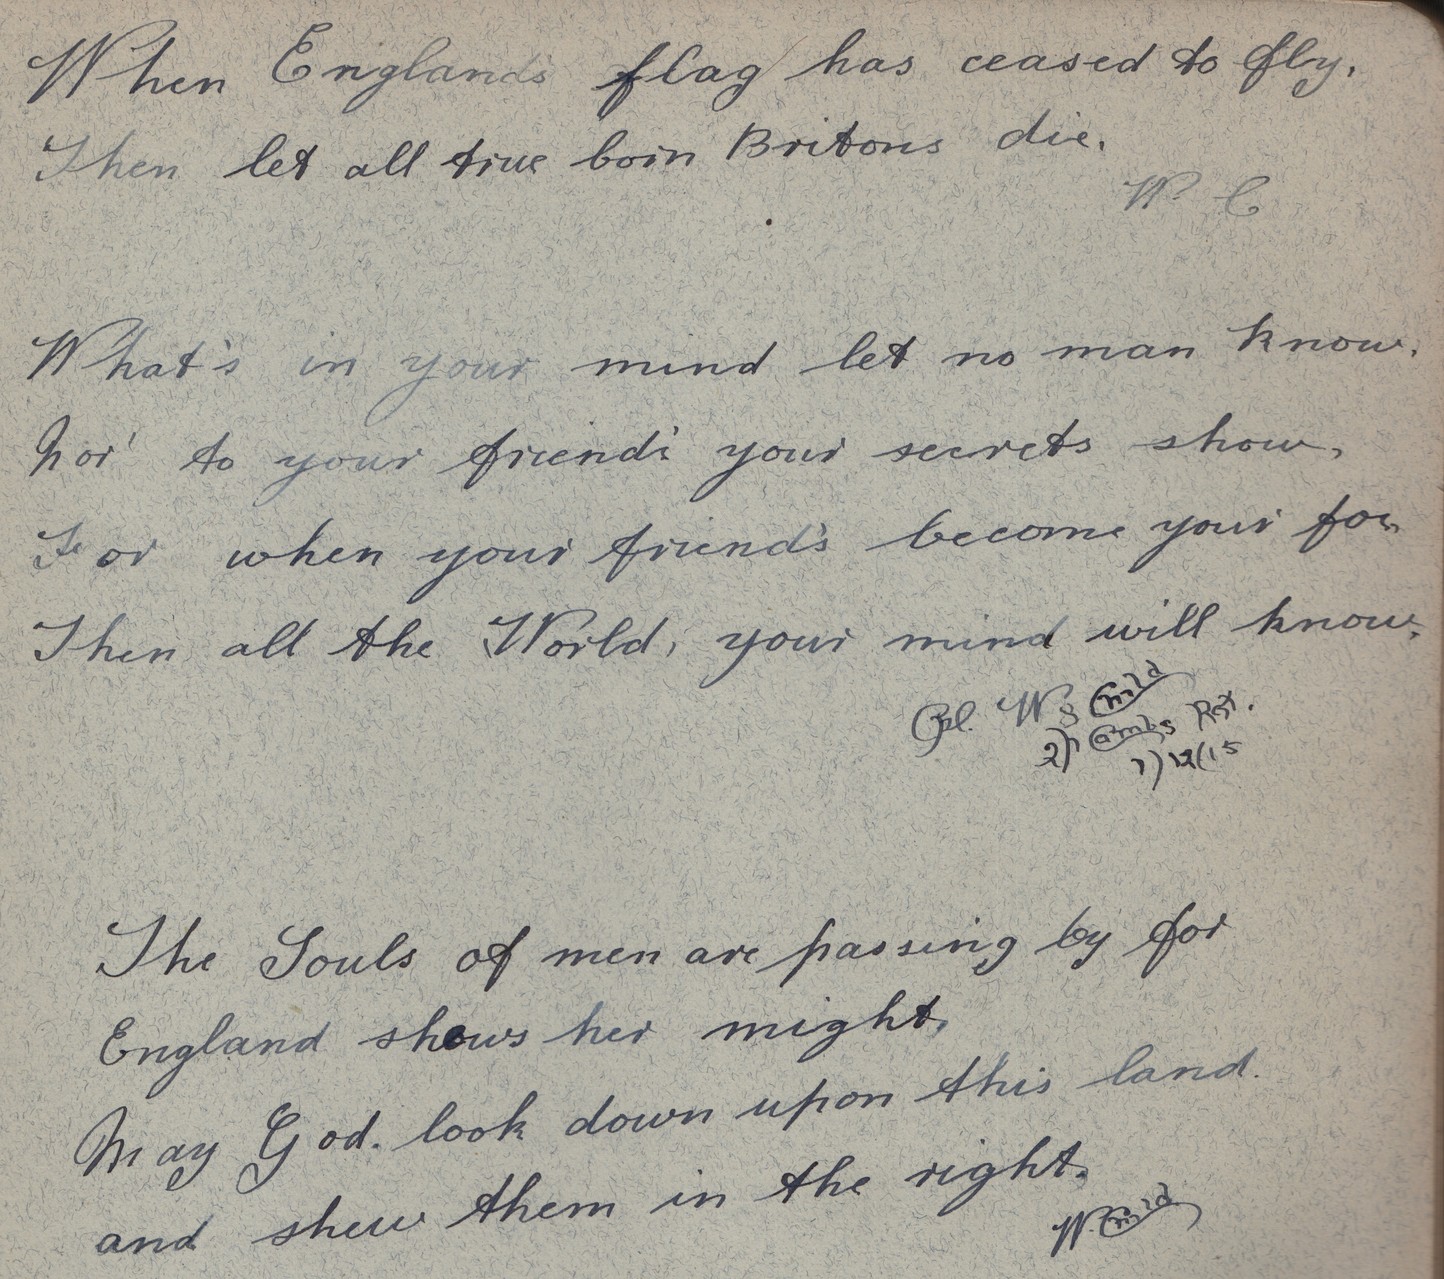 When England's flag has ceased to fly,
Then let all true born Britons die.
W C
What's in your mind let no man know.
Nor' to your friend's your secrets show,
For when your friend's become your foe,
Then all the World, your mind will know.
Cpl. W
2) Cambs Rgt.
1)12(15
The Souls of men are passing by for
England shows her might,
May God. look down upon this land.
and shew them in the right.
W.